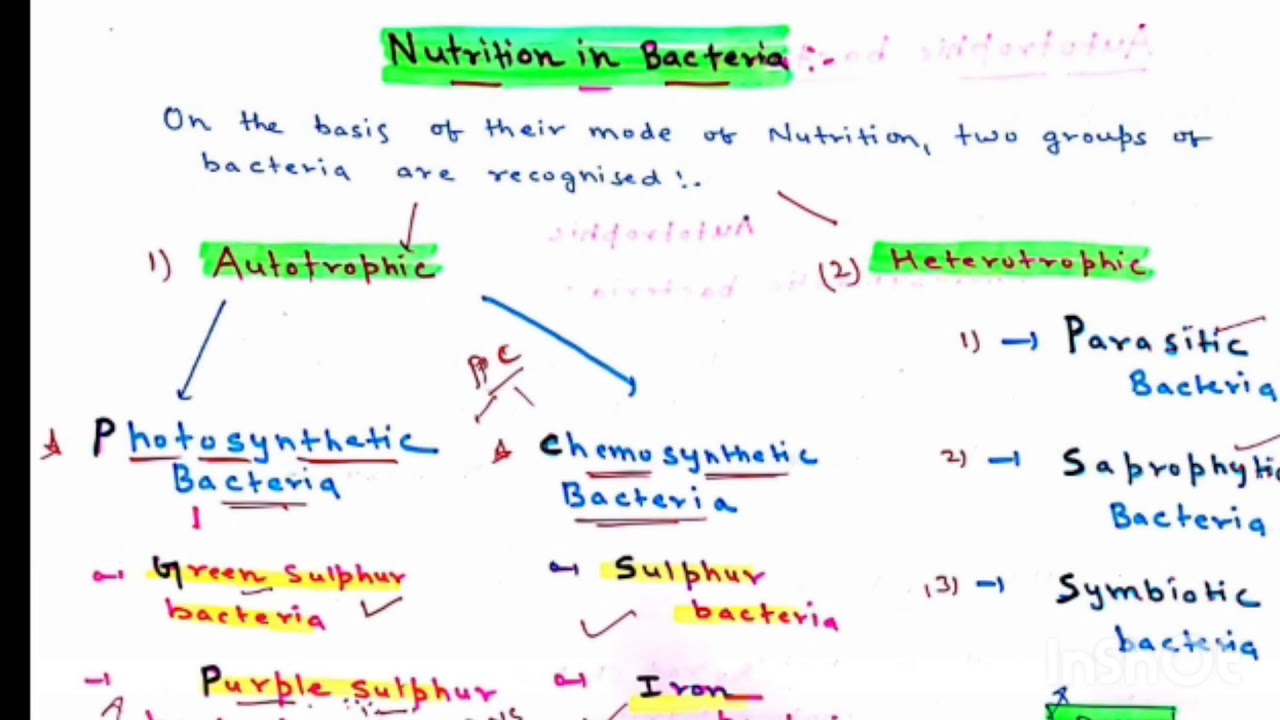 Nutrition in Bacteria :-
On the basis of their mode of Nutrition, two groups of
bacteria are recognised :-
1) Autotrophic
(2) Heterotrophic
PPC
Photosynthetic
Bacteria
Green Sulphur
bacteria
Purple sulphur
Chemosynthetic
Bacteria
Sulphur
bacteria
Iron
1) → Parasitic
Bacteria
2) → Saprophytic
Bacteria
(3) → Symbiotic
bacteria
InShOt